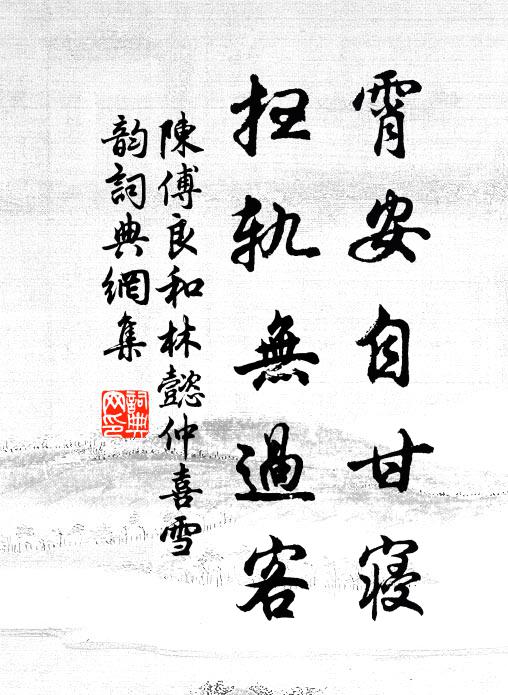 霄安自甘寝
扫轨無過客
陳傅良和林懿仲喜雪
韵詞典網集
詞典网印